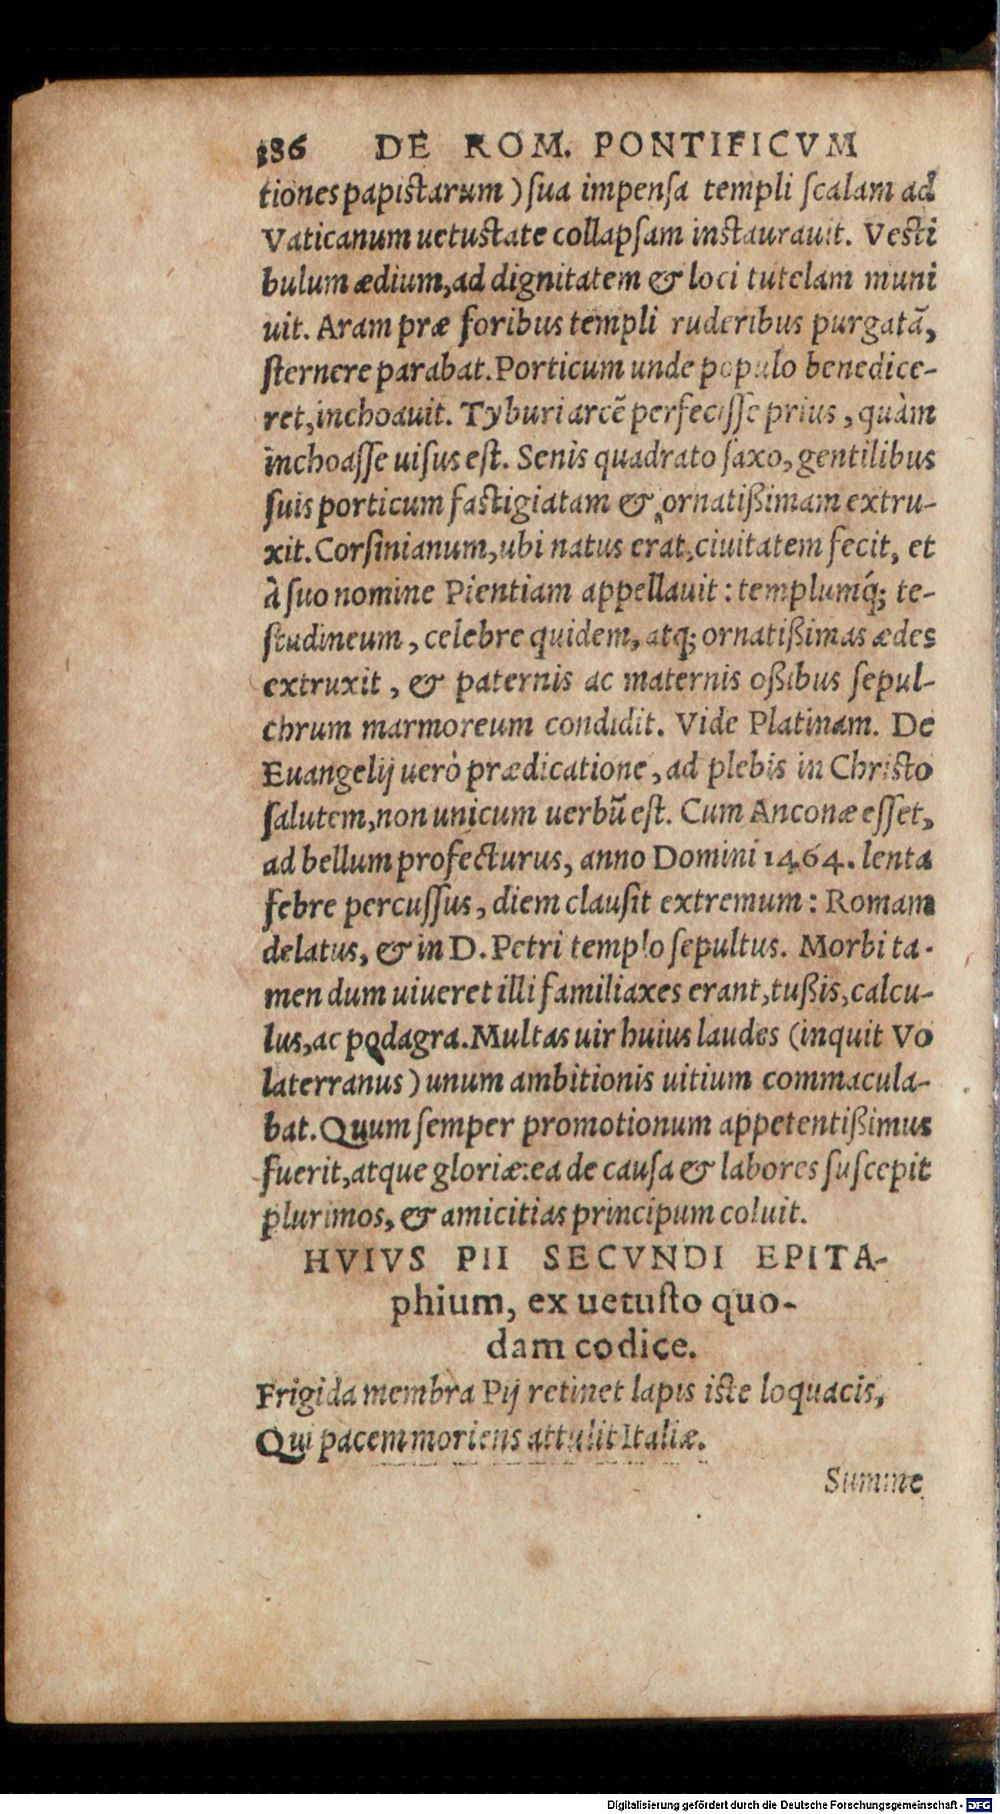 386 DE ROM. PONTIFICVM
tiones papistarum) sua impensa templi scalam ad
Vaticanum uetustate collapsam instaurauit. Vesti
bulum ædium, ad dignitatem & loci tutelam muni
uit. Aram præ foribus templi ruderibus purgatā,
sternere parabat. Porticum unde populo benedice-
ret, inchoauit. Tyburi arcē perfecisse prius, quàm
inchoasse uisus est. Senis quadrato saxo, gentilibus
suis porticum fastigiatam & ornatißimam extru-
xit. Corsinianum, ubi natus erat, ciuitatem fecit, et
à suo nomine Pientiam appellauit: templumq́; te-
studineum, celebre quidem, atq; ornatißimas ædes
extruxit, & paternis ac maternis oßibus sepul-
chrum marmoreum condidit. Vide Platinam. De
Euangelij uerò prædicatione, ad plebis in Christo
salutem, non unicum uerbū est. Cum Anconæ esset,
ad bellum profecturus, anno Domini 1464. lenta
febre percussus, diem clausit extremum: Romam
delatus, & in D. Petri templo sepultus. Morbi ta-
men dum uiueret illi familiaxes erant, tußis, calcu-
lus, ac podagra. Multas uir huius laudes (inquit Vo
laterranus) unum ambitionis uitium commacula-
bat. Quum semper promotionum appetentißimus
fuerit, atque gloriæ: ea de causa & labores suscepit
plurimos, & amicitias principum coluit.
HVIVS PII SECVNDI EPITA-
phium, ex uetusto quo-
dam codice.
Frigida membra Pij retinet lapis iste loquacis,
Qui pacem moriens attulit Italiæ.
Summe
Digitalisierung gefördert durch die Deutsche Forschungsgemeinschaft - DFG